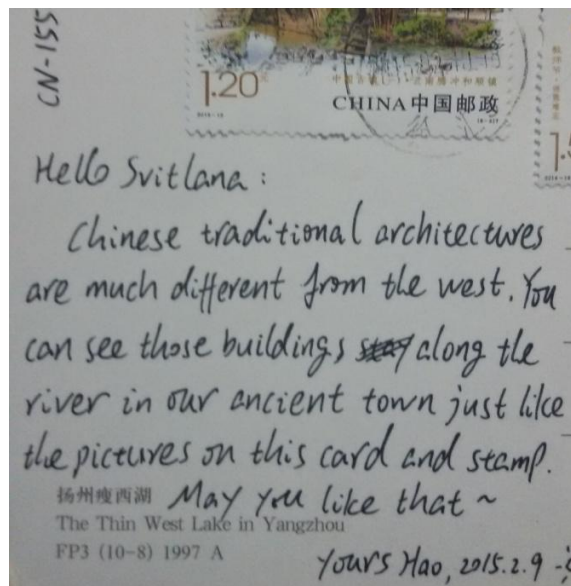 CN-155
1.20元
CHINA中国邮政
Hello Svitlana:
Chinese traditional architectures
are much different from the west. You
can see those buildings along the
river in our ancient town just like
the pictures on this card and stamp.
扬州瘦西湖 May you like that ~
The Thin West Lake in Yangzhou
FP3 (10-8) 1997 A
Yours Hao, 2015.2.9